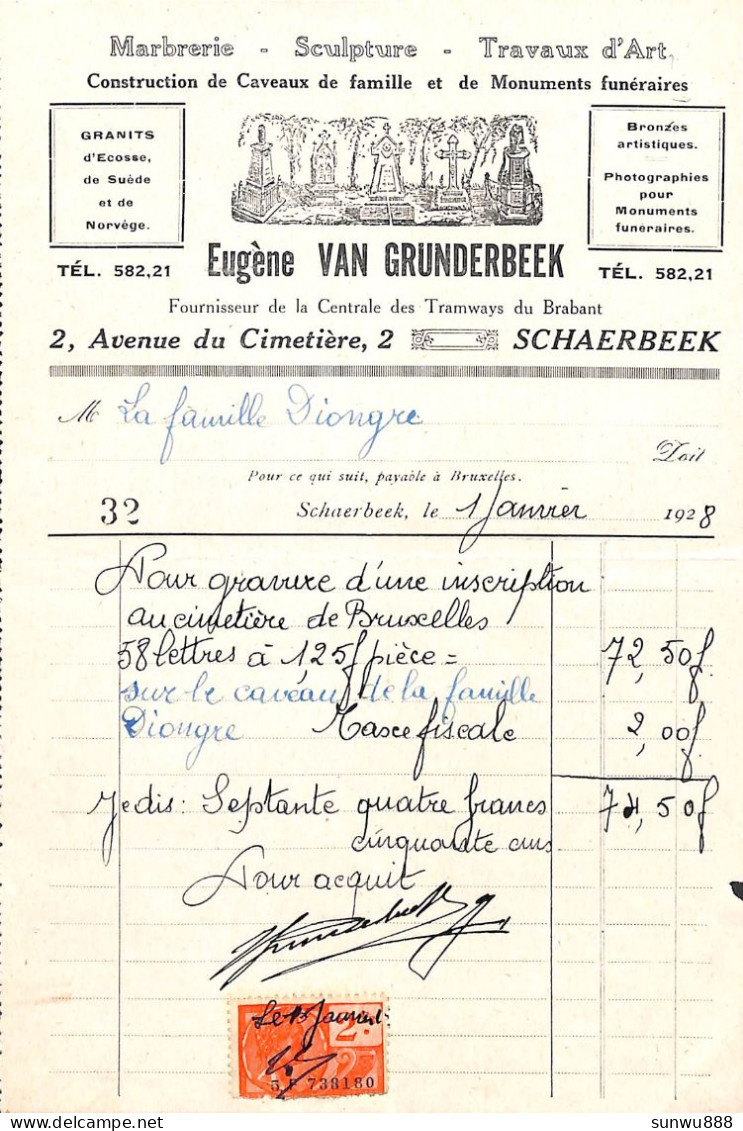 Marbrerie - Sculpture - Travaux d'Art
Construction de Caveaux de famille et de Monuments funéraires
GRANITS
d'Ecosse,
de Suède
et de
Norvège.
Bronzes
artistiques.
Photographies
pour
Monuments
funéraires.
TÉL. 582,21
Eugène VAN GRUNDERBEEK
TÉL. 582,21
Fournisseur de la Centrale des Tramways du Brabant
2, Avenue du Cimetière, 2 SCHAERBEEK
M La famille Diongre
Doit
Pour ce qui suit, payable à Bruxelles.
32 Schaerbeek, le 1 Janvier 1928
Pour gravure d'une inscription
au cimetière de Bruxelles
58 lettres à 1,25f pièce = 72,50f
sur le caveau de la famille
Diongre Taxe fiscale 2,00f
Je dis : Septante quatre francs 74,50f
cinquante cms
Pour acquit
2
5 F 738180
sunwu888.com